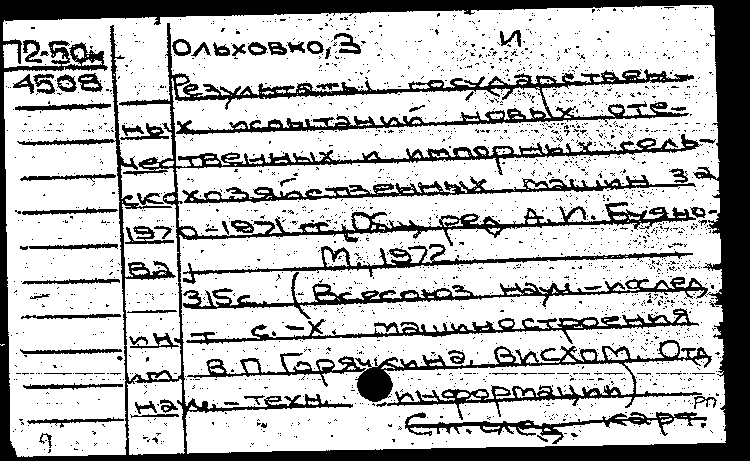 72-50к
4508
Ольховко, З И
Результаты государствен-
ных испытаний новых оте-
чественных и импорных сель-
скохозяйственных машин за
1970-1971 гг. Общ. ред. А. И. Буяно-
ва
М., 1972.
315с. (Всесоюз. науч.-исслед.
ин-т с.-х. машиностроения
им. В.П. Горячкина. Висхом. Отд.
науч.-техн. информации).
рп
См. след. карт.
9